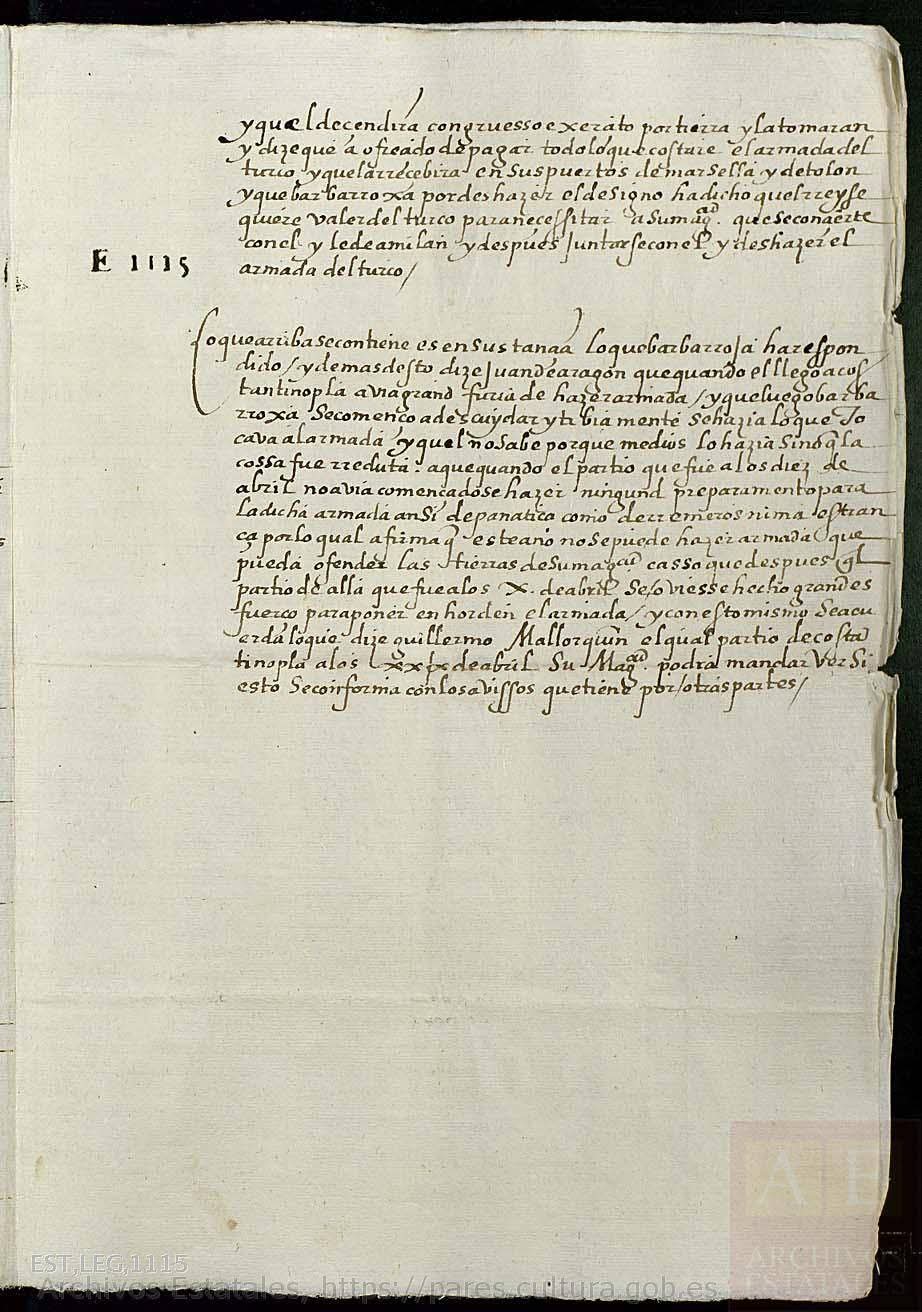 y quel decendira con gruesso exerçito por tierra y la tomaran
y dize que a ofreçido de pagar todo lo que costare el armada del
turco y que la rrecebira en sus puertos de marsella y de tolon
y que barbarroxa por deshazer el designo ha dicho quel rrey se
quiere valer del turco para neçessitar a su mag.ad que se conçierte
con el y le de a milan y despues juntarse con el y deshazer el
E 1115
armada del turco /
Lo que arriba se contiene es en sustançia lo que barbarroja ha respon
dido / y demas desto dize Juan de aragon que quando el llego a cos
tantinopla avia grand furia de hazer armada / y que luego barba
rroxa se comenco a descuydar y tibiamente se hazia lo que To
cava al armada y quel no sabe por que medios lo hazia sino q la
cossa fue rreduta a que quando el partio que fue a los diez de
abril no avia comencadose hazer ningund preparamento para
la dicha armada ansi de panatica como de rremeros ni maestran
ça por lo qual afirma q este año no se puede hazer armada que
pueda ofender las tierras de su mag.ad casso que despues ql
partio de alla que fue a los X. de abril se oviesse hecho grand es
fuerco para poner en horden el armada / y con esto mismo se acu
erda lo que dize guillermo Mallorquin el qual partio de costa
tinopla a los xxix de abril Su Mag.ad podra mandar ver si
esto se conforma con los avissos que tiene por / otras partes /
EST,LEG,1115
Archivos Estatales, https://pares.cultura.gob.es
AE
ARCHIVOS
ESTATALES